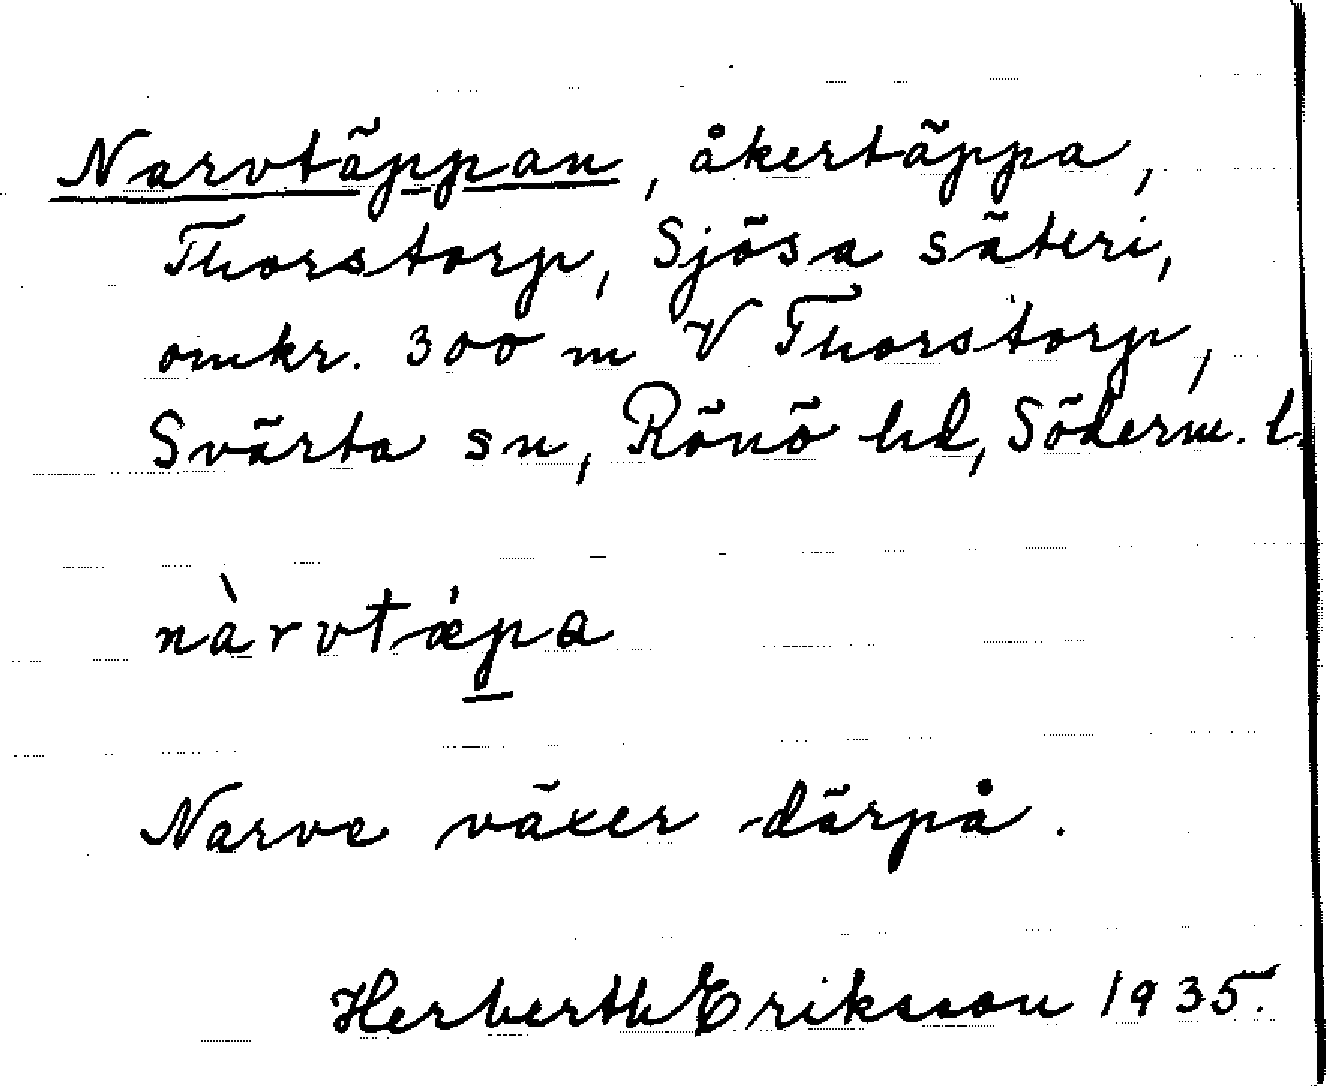 Narvtäppan, åkertäppa,
Thorstorp, Sjösa säteri,
omkr. 300 m V Thorstorp,
Svärta sn, Rönö hd, Söderm. l.
nàrvtæ̍p̲a
Narve växer därpå.
Herberth Eriksson 1935.